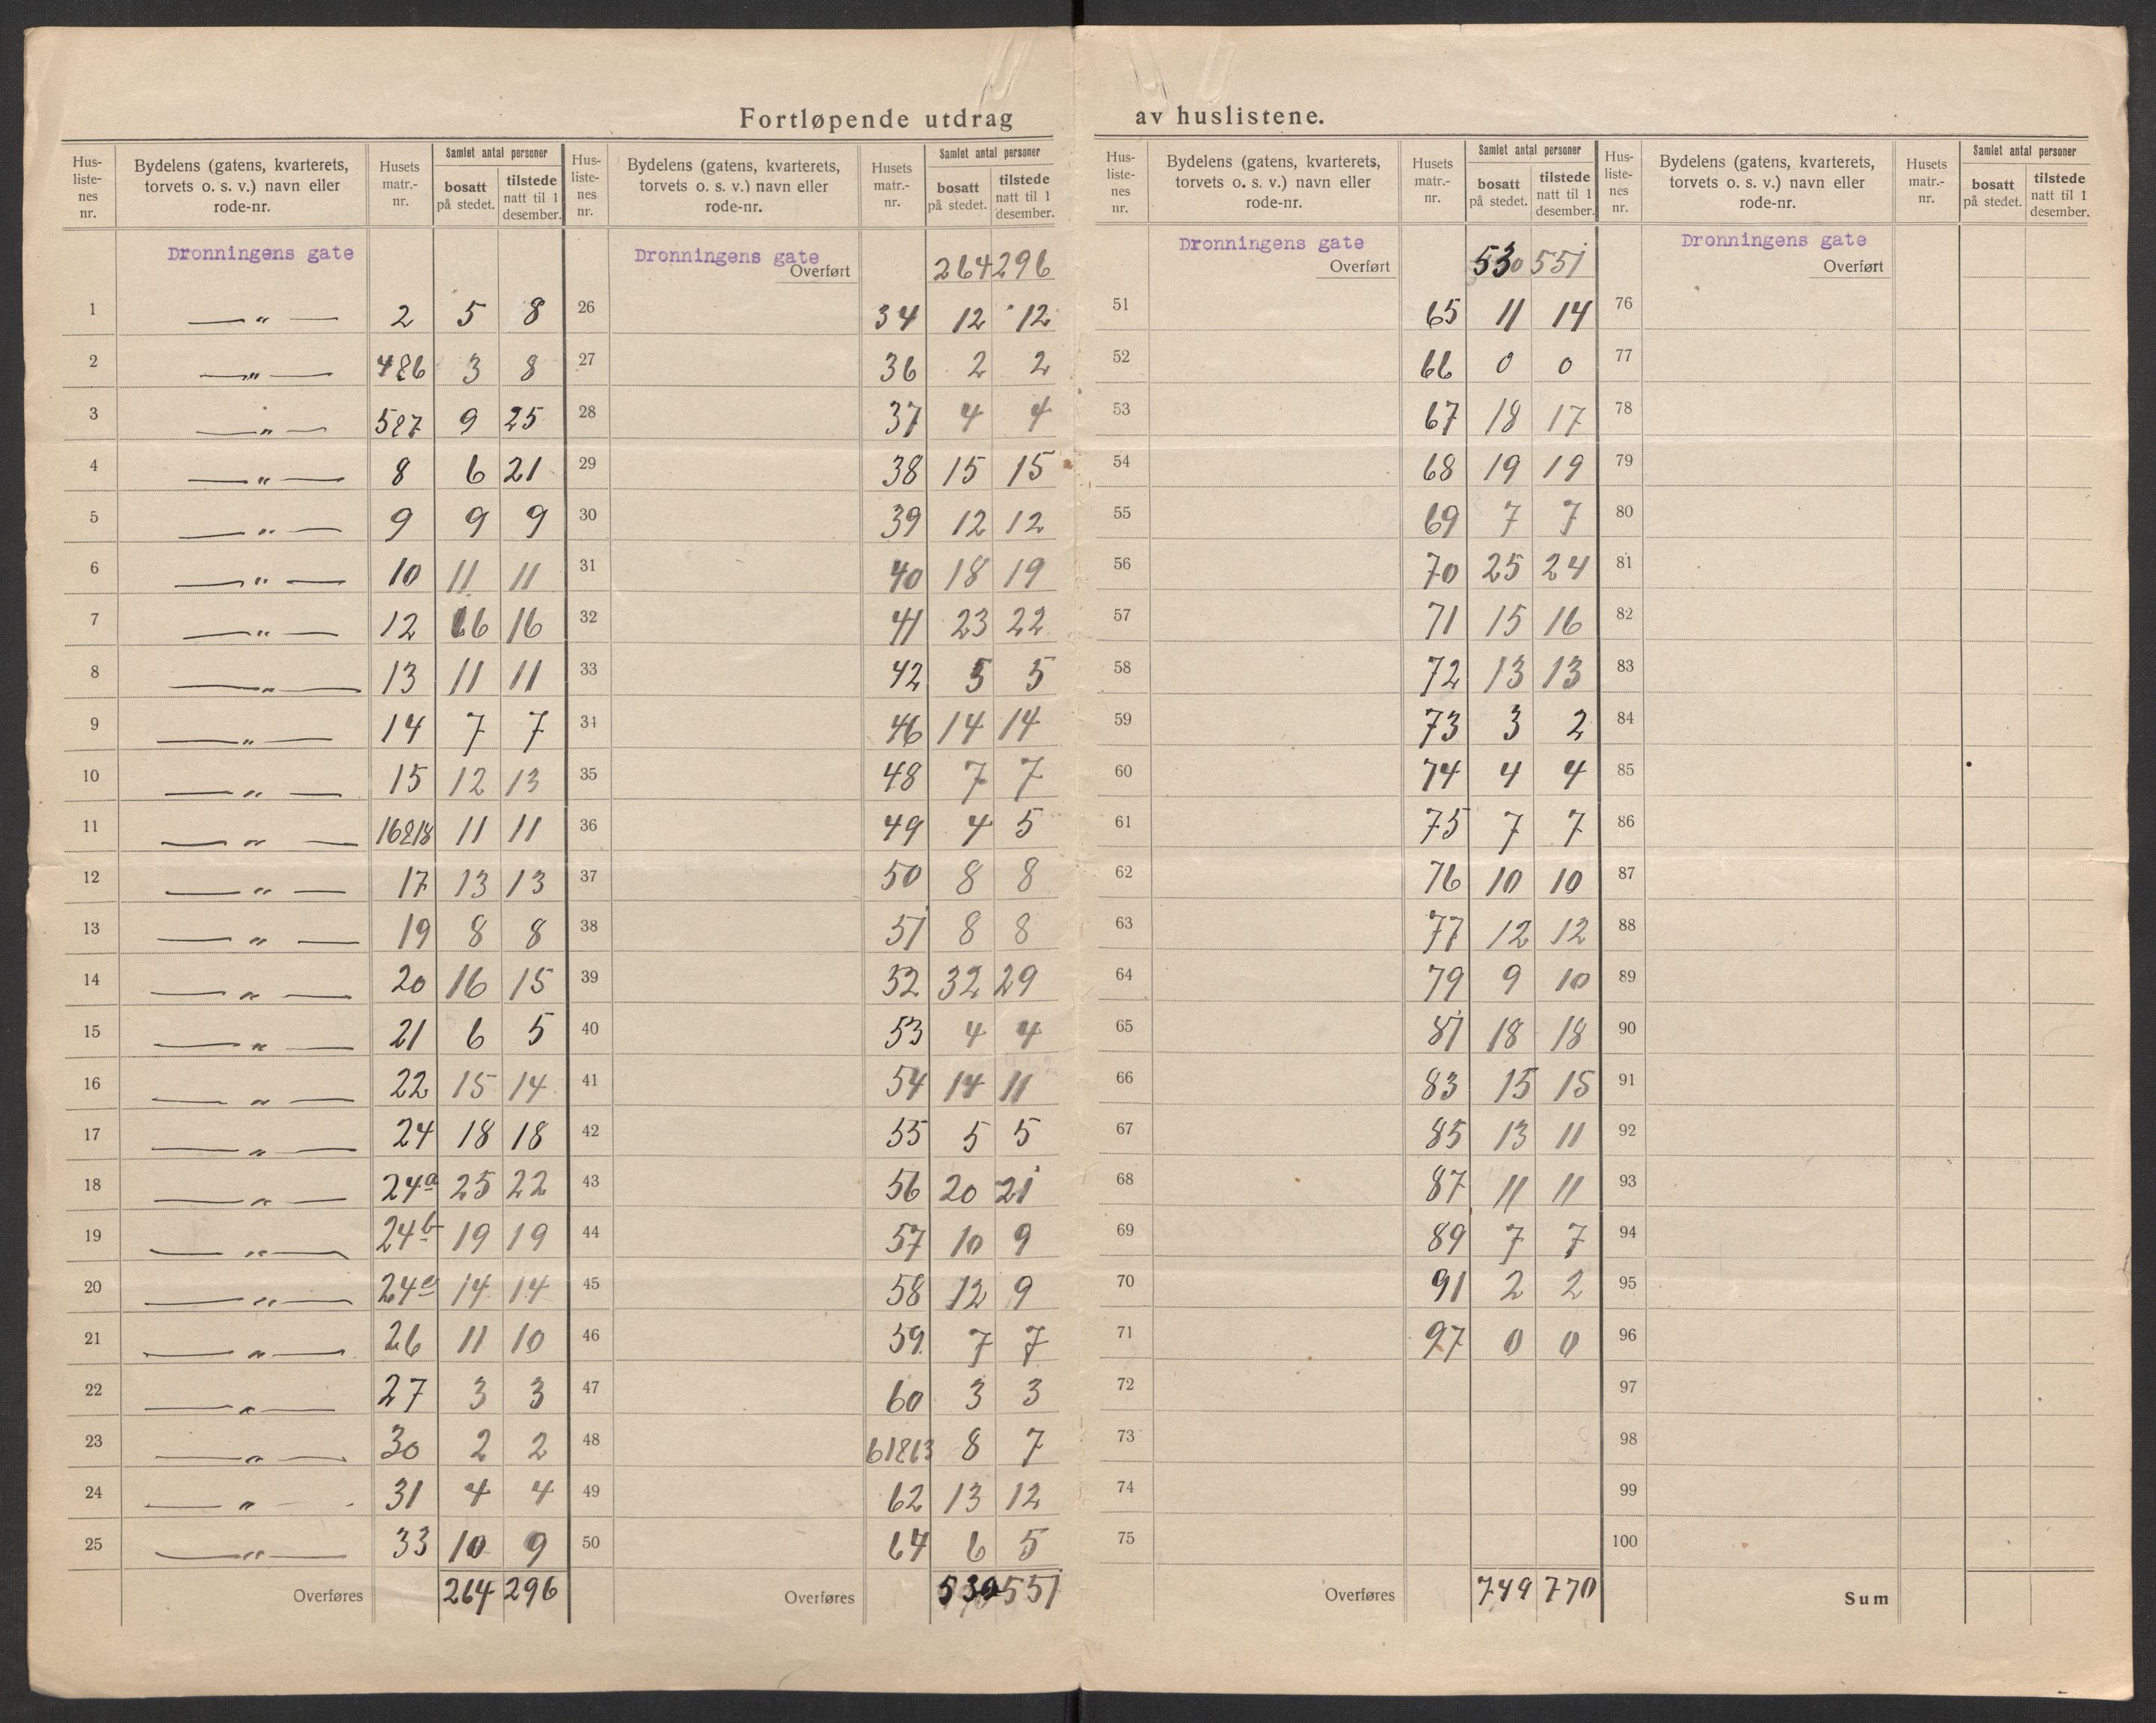 Fortløpende utdrag av huslistene.
Hus-liste-nes nr. | Bydelens (gatens, kvarterets, torvets o. s. v.) navn eller rode-nr. | Husets matr.-nr. | Samlet antal personer bosatt på stedet. | tilstede natt til 1 desember.
Dronningens gate
1 —„— 2 5 8
2 —„— 4&6 3 8
3 —„— 5&7 9 25
4 —„— 8 6 21
5 —„— 9 9 9
6 —„— 10 11 11
7 —„— 12 16 16
8 —„— 13 11 11
9 —„— 14 7 7
10 —„— 15 12 13
11 —„— 16&18 11 11
12 —„— 17 13 13
13 —„— 19 8 8
14 —„— 20 16 15
15 —„— 21 6 5
16 —„— 22 15 14
17 —„— 24 18 18
18 —„— 24a 25 22
19 —„— 24b 19 19
20 —„— 24c 14 14
21 —„— 26 11 10
22 —„— 27 3 3
23 —„— 30 2 2
24 —„— 31 4 4
25 —„— 33 10 9
Overføres 264 296
Hus-liste-nes nr. | Bydelens (gatens, kvarterets, torvets o. s. v.) navn eller rode-nr. | Husets matr.-nr. | Samlet antal personer bosatt på stedet. | tilstede natt til 1 desember.
Dronningens gate
Overført 264 296
26 34 12 12
27 36 2 2
28 37 4 4
29 38 15 15
30 39 12 12
31 40 18 19
32 41 23 22
33 42 5 5
34 46 14 14
35 48 7 7
36 49 4 5
37 50 8 8
38 51 8 8
39 52 32 29
40 53 4 4
41 54 14 11
42 55 5 5
43 56 20 21
44 57 10 9
45 58 12 9
46 59 7 7
47 60 3 3
48 61&63 8 7
49 62 13 12
50 64 6 5
Overføres 530 551
Hus-liste-nes nr. | Bydelens (gatens, kvarterets, torvets o. s. v.) navn eller rode-nr. | Husets matr.-nr. | Samlet antal personer bosatt på stedet. | tilstede natt til 1 desember.
Dronningens gate
Overført 530 551
51 65 11 14
52 66 0 0
53 67 18 17
54 68 19 19
55 69 7 7
56 70 25 24
57 71 15 16
58 72 13 13
59 73 3 2
60 74 4 4
61 75 7 7
62 76 10 10
63 77 12 12
64 79 9 10
65 81 18 18
66 83 15 15
67 85 13 11
68 87 11 11
69 89 7 7
70 91 2 2
71 97 0 0
72
73
74
75
Overføres 749 770
Hus-liste-nes nr. | Bydelens (gatens, kvarterets, torvets o. s. v.) navn eller rode-nr. | Husets matr.-nr. | Samlet antal personer bosatt på stedet. | tilstede natt til 1 desember.
Dronningens gate
Overført
76
77
78
79
80
81
82
83
84
85
86
87
88
89
90
91
92
93
94
95
96
97
98
99
100
Sum